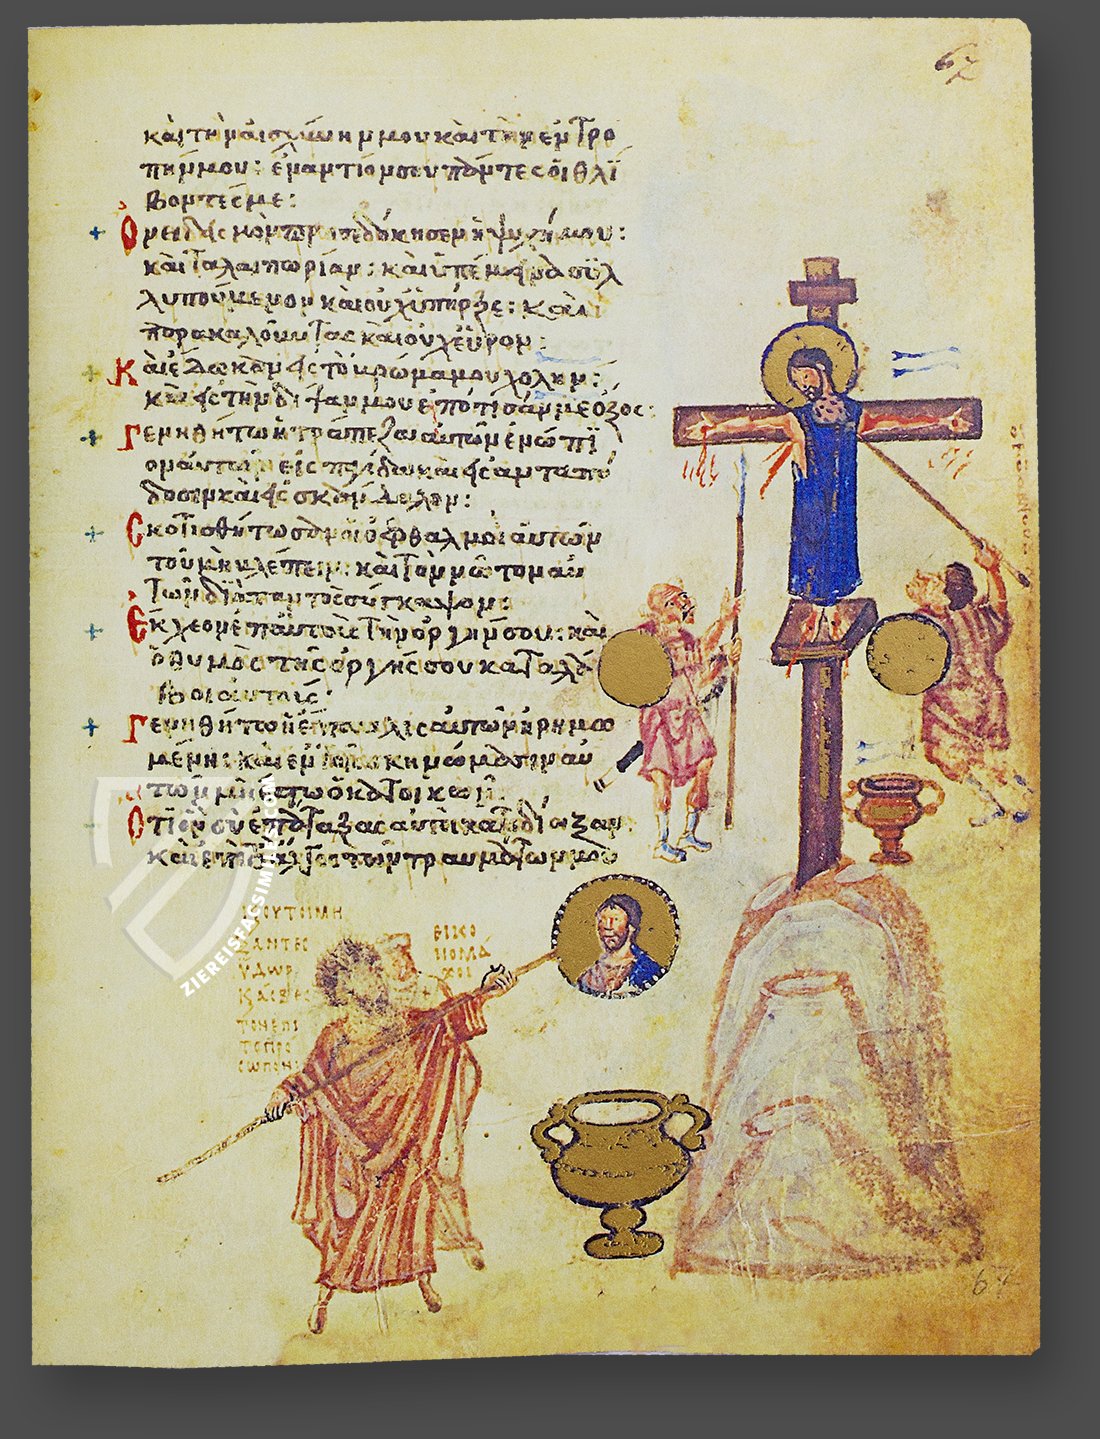 67
καὶ τὴν αἰσχύνην μου καὶ τὴν ἐντρο
πήν μου: ἐναντίον σου πάντες οἱ θλί
βοντές με:
+ Ὀνειδισμὸν προσεδόκησεν ἡ ψυχή μου:
καὶ ταλαιπωρίαν: καὶ ὑπέμεινα συλ
λυπούμενον καὶ οὐχ ὑπῆρξε: καὶ
παρακαλοῦντας καὶ οὐχ εὗρον:
+ Καὶ ἔδωκαν εἰς τὸ βρῶμα μου χολήν:
καὶ εἰς τὴν δίψαν μου ἐπότισάν με ὄξος:
+ Γενηθήτω ἡ τράπεζα αὐτῶν ἐνώπι
ον αὐτῶν εἰς παγίδα καὶ εἰς ἀνταπό
δοσιν καὶ εἰς σκάνδαλον:
+ Σκοτισθήτωσαν οἱ ὀφθαλμοὶ αὐτῶν
τοῦ μὴ βλέπειν: καὶ τὸν νῶτον αὐ
τῶν διὰ παντὸς σύγκαμψον:
+ Ἔκχεον ἐπ αὐτοὺς τὴν ὀργήν σου: καὶ
ὁ θυμὸς τῆς ὀργῆς σου καταλά
βοι αὐτούς:
+ Γενηθήτω ἡ ἔπαυλις αὐτῶν ἠρημω
μένη: καὶ ἐν τοῖς σκηνώμασιν αὐ
τῶν μὴ ἔστω ὁ κατοικῶν:
+ Ὅτι ὃν σὺ ἐπάταξας αὐτοὶ κατεδίωξαν:
καὶ ἐπὶ τὸ ἄλγος τῶν τραυμάτων μου
ΟΥΤΟΙ ΜΗ
ΞΑΝΤΕΣ
ΥΔΩΡ
ΚΑΙ ΑΣΒΕΣ
ΤΟΝ ΕΠΙ
ΤΟ ΠΡΟ
ΣΩΠΟΝ
ΕΙΚΟ
ΝΟΜΑ
ΧΟΙ
67
ZIEREISFACSIMILES.COM